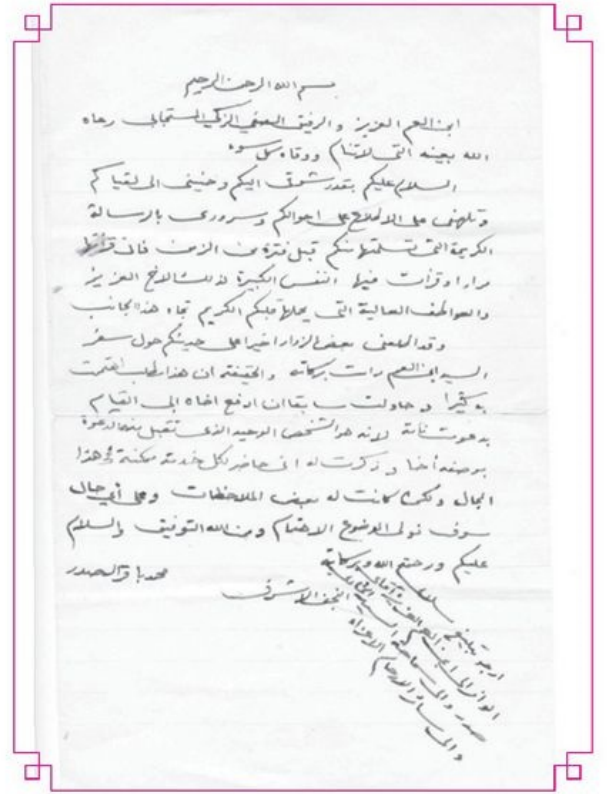 بسم الله الرحمن الرحيم
ابن العم العزيز والرفيق الصفي الزكي المستجابي رعاه
الله بعينه التي لا تنام ووقاه كل سوء
السلام عليكم بقدر شوقي اليكم وحنيني الى لقياكم
وتلهفي على الاطلاع على احوالكم وسروري بالرسالة
الكريمة التي تسلمتها منكم قبل فترة من الزمن فاني قرأتها
مرارا وقرأت فيها النفس الكبيرة لذلك الاخ العزيز
والعواطف العالية التي يحملها قلبكم الكريم تجاه هذا الجانب
وقد اطلعني بعض الزوار اخيرا على حديثكم حول سفر
السيد ابن العم دامت بركاته والحقيقة ان هذا مطلب اهتممت
به كثيرا وحاولت سابقا ان ادفع اخاه الى القيام
بدعوته لانه هو الشخص الوحيد الذي تتقبل منه الدعوة
بوصفه أخا وذكرت له اني حاضر لكل خدمة ممكنة في هذا
المجال ولكن كانت له بعض الملاحظات وعلى أي حال
سوف نولي الموضوع الاهتمام ومن الله التوفيق والسلام
عليكم ورحمة الله وبركاته
محمد باقر الصدر
النجف الاشرف
ارجو تبليغ سلامي
الوافر الى ابن العم
صدر والى سماحة السيد
والى سائر الارحام الاعزاء